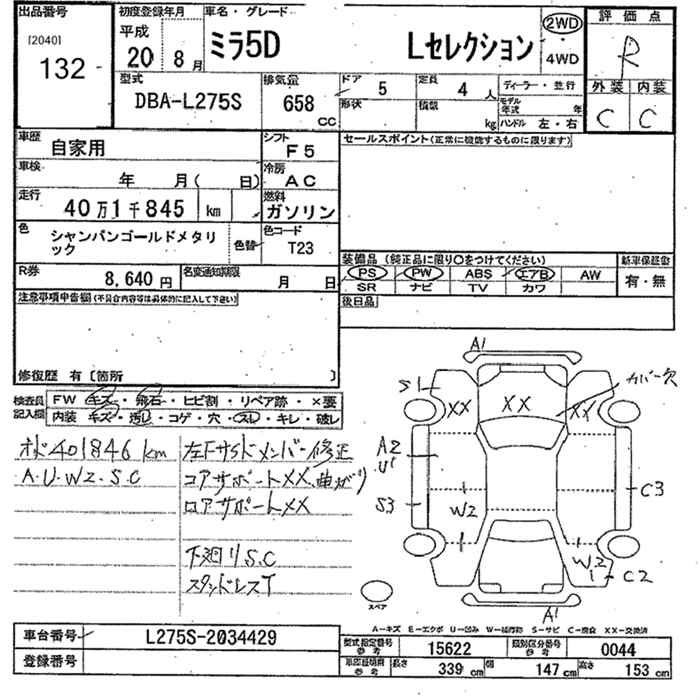 出品番号
[2040]
132
初度登録年月
平成
20 8月
車名・グレード
ミラ5D Lセレクション
2WD
4WD
評価点
R
外装 内装
C C
型式
DBA-L275S
排気量
658 cc
ドア 5
形状
定員 4 人
積載 kg
ディーラー・並行
モデル年式 年
ハンドル 左・右
車歴
自家用
シフト
F5
車検
年 月( 日)
冷房
AC
走行
40万1千845 km
燃料
ガソリン
色
シャンパンゴールドメタリ
ック
色替
色コード
T23
R券
8,640円
名変通知期限
月 日
セールスポイント(正常に機能するものに限ります)
装備品(純正品に限り○をつけてください)
PS PW ABS エアB AW
SR ナビ TV カワ
新車保証書
有・無
後日品
注意事項申告欄(不具合内容等は具体的に記入して下さい)
修復歴 有〔箇所 〕
検査員
記入欄
FW キズ・飛石・ヒビ割・リペア跡・×要
内装 キズ・汚レ・コゲ・穴・スレ・キレ・破レ
オド401846km
A.U.W2.S.C
左Fサイドメンバー修正
コアサポートXX、曲がり
ロアサポートXX
下廻りS.C
スタッドレスT
A1
S1
XX
XX
XX
カバー欠
A2
U1
S3
W2
C3
W2
C2
A1
スペア
A-キズ E-エクボ U-凹み W-補修跡 S-サビ C-腐食 XX-交換済
車台番号
L275S-2034429
登録番号
型式指定番号
参考
15622
類別区分番号
参考
0044
車車証明書
参考
長さ 339 cm
幅 147 cm
高さ 153 cm